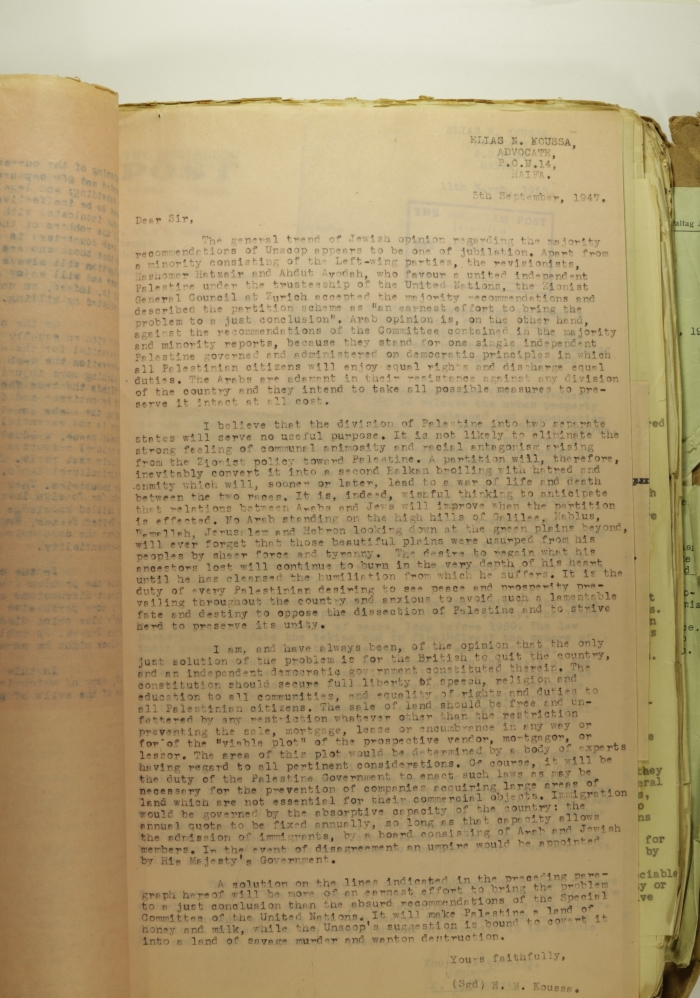 ELIAS N. KOUSSA,
ADVOCATE,
P.O.B.14,
HAIFA.
5th September, 1947.
Dear Sir,
The general trend of Jewish opinion regarding the majority
recommendations of Unscop appears to be one of jubilation. Apart from
a minority consisting of the Left-wing parties, the revisionists,
Hashomer Hatzair and Ahdut Avodah, who favour a united independent
Palestine under the trusteeship of the United Nations, the Zionist
General Council at Zurich accepted the majority recommendations and
described the partition scheme as "an earnest effort to bring the
problem to a just conclusion". Arab opinion is, on the other hand,
against the recommendations of the Committee contained in the majority
and minority reports, because they stand for one single independent
Palestine governed and administered on democratic principles in which
all Palestinian citizens will enjoy equal rights and discharge equal
duties. The Arabs are adamant in their resistance against any division
of the country and they intend to take all possible measures to pre-
serve it intact at all cost.
I believe that the division of Palestine into two separate
states will serve no useful purpose. It is not likely to eliminate the
strong feeling of communal animosity and racial antagonism arising
from the Zionist policy toward Palestine. A partition will, therefore,
inevitably convert it into a second Balkan broiling with hatred and
enmity which will, sooner or later, lead to a war of life and death
between the two races. It is, indeed, wishful thinking to anticipate
that relations between Arabs and Jews will improve when the partition
is effected. No Arab standing on the high hills of Galilee, Nablus,
Ramallah, Jerusalem and Hebron looking down at the green plains beyond,
will ever forget that those beautiful plains were usurped from his
peoples by sheer force and tyranny. The desire to regain what his
ancestors lost will continue to burn in the very depth of his heart
until he has cleansed the humiliation from which he suffers. It is the
duty of every Palestinian desiring to see peace and prosperity pre-
vailing throughout the country and anxious to avoid such a lamentable
fate and destiny to oppose the dissection of Palestine and to strive
hard to preserve its unity.
I am, and have always been, of the opinion that the only
just solution of the problem is for the British to quit the country,
and an independent democratic government constituted therein. The
constitution should secure full liberty of speech, religion and
education to all communities, and equality of rights and duties to
all Palestinian citizens. The sale of land should be free and un-
fettered by any restriction whatever other than the restriction
preventing the sale, mortgage, lease or encumbrance in any way or
for of the "viable plot" of the prospective vendor, mortgagor, or
lessor. The area of this plot would be determined by a body of experts
having regard to all pertinent considerations. Of course, it will be
the duty of the Palestine Government to enact such laws as may be
necessary for the prevention of companies acquiring large areas of
land which are not essential for their commercial objects. Immigration
would be governed by the absorptive capacity of the country: the
annual quota to be fixed annually, so long as that capacity allows
the admission of immigrants, by a board consisting of Arab and Jewish
members. In the event of disagreement an umpire would be appointed
by His Majesty's Government.
A solution on the lines indicated in the preceding para-
graph hereof will be more of an earnest effort to bring the problem
to a just conclusion than the absurd recommendations of the Special
Committee of the United Nations. It will make Palestine a land of
honey and milk, while the Unscop's suggestion is bound to covert it
into a land of savage murder and wanton destruction.
Yours faithfully,
(Sgd) E. N. Koussa.